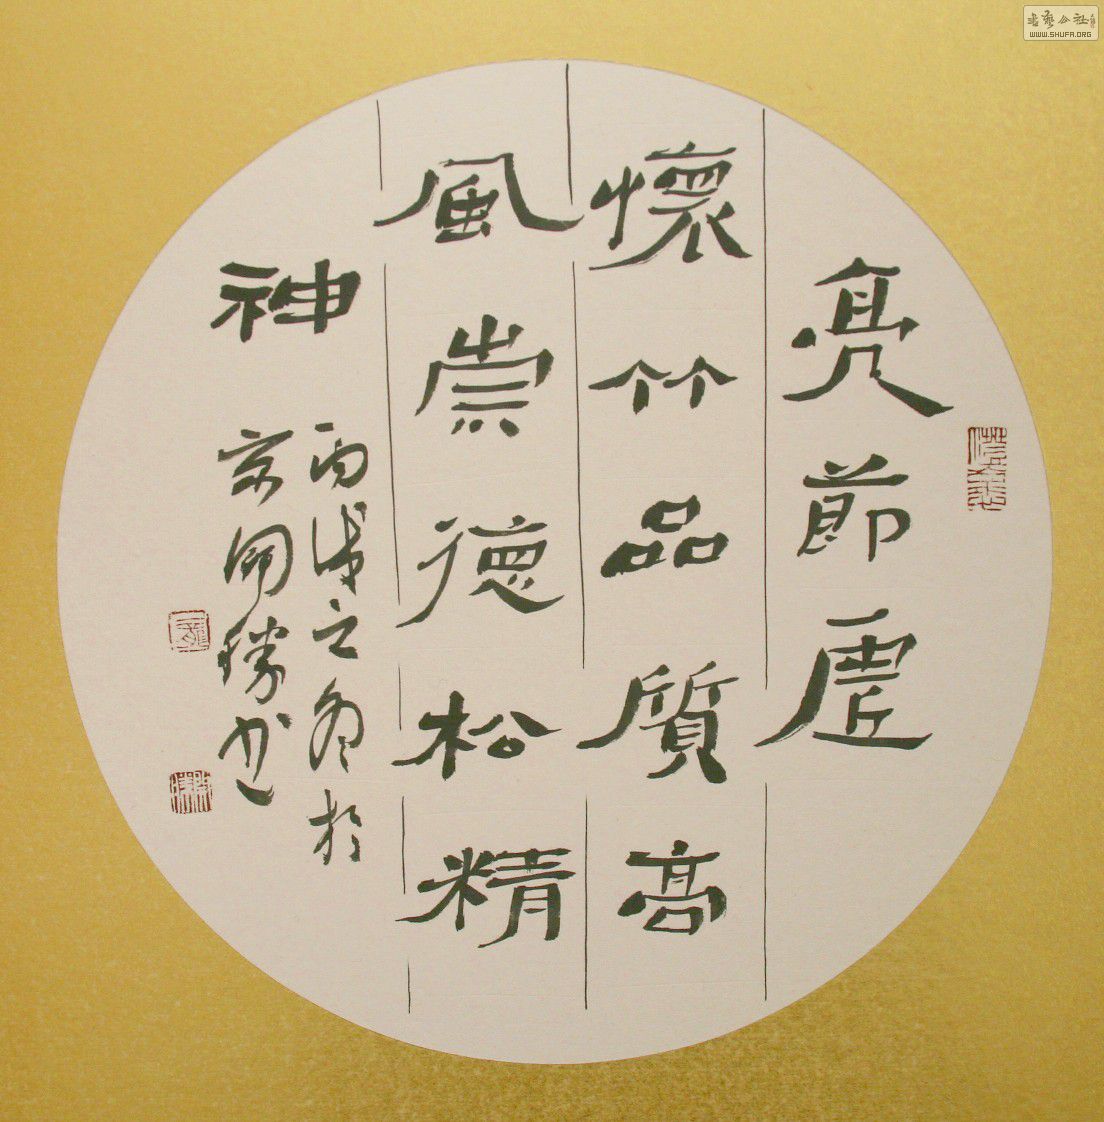 亮節虛
懷竹品質高
風崇德松精
神
丙戌之冬於
京開勝書
書藝公社
WWW.SHUFA.ORG